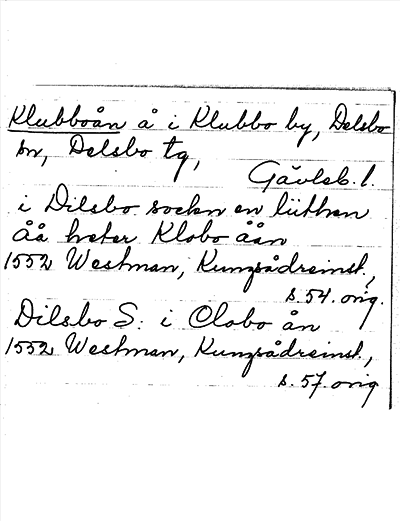 Klubboån å i Klubbo by, Delsbo
sn, Delsbo tg,
Gävleb. l.
i Dilsbo sockn en lüthen
åå heter Klobo åån
1552 Westman, Kungsådreinst.,
s. 54. orig.
Dilsbo S: i Clobo ån
1552 Westman, Kungsådreinst.,
s. 57. orig